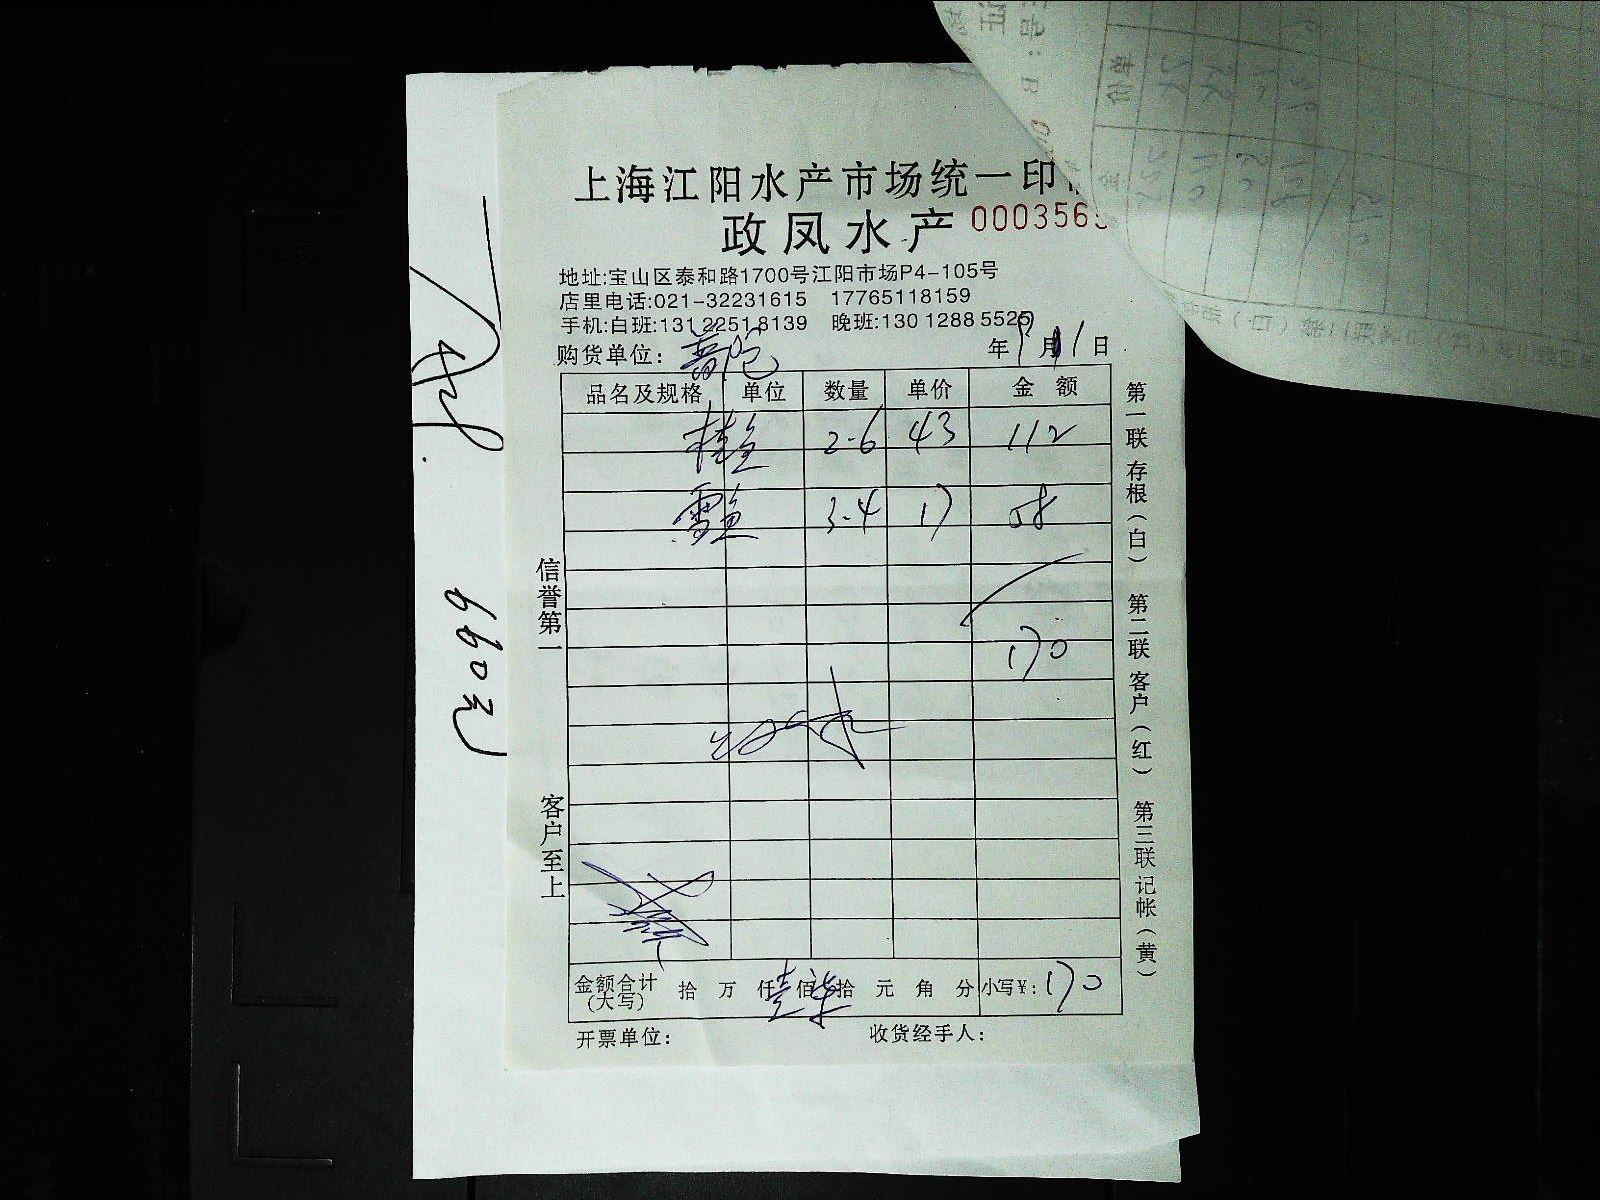 上海江阳水产市场统一印
政凤水产 000356
地址:宝山区泰和路1700号江阳市场P4-105号
店里电话:021-32231615 17765118159
手机:白班:131 2251 8139 晚班:130 1288 5525
购货单位: 普陀 年 月 日
品名及规格 单位 数量 单价 金额
桂鱼 2-6 43 112
雪鱼 3-4 17 58
170
金额合计(大写) 拾 万 仟 壹 佰 柒 拾 元 角 分 小写¥: 170
开票单位: 收货经手人:
信誉第一
客户至上
第一联存根(白) 第二联客户(红) 第三联记帐(黄)
660元